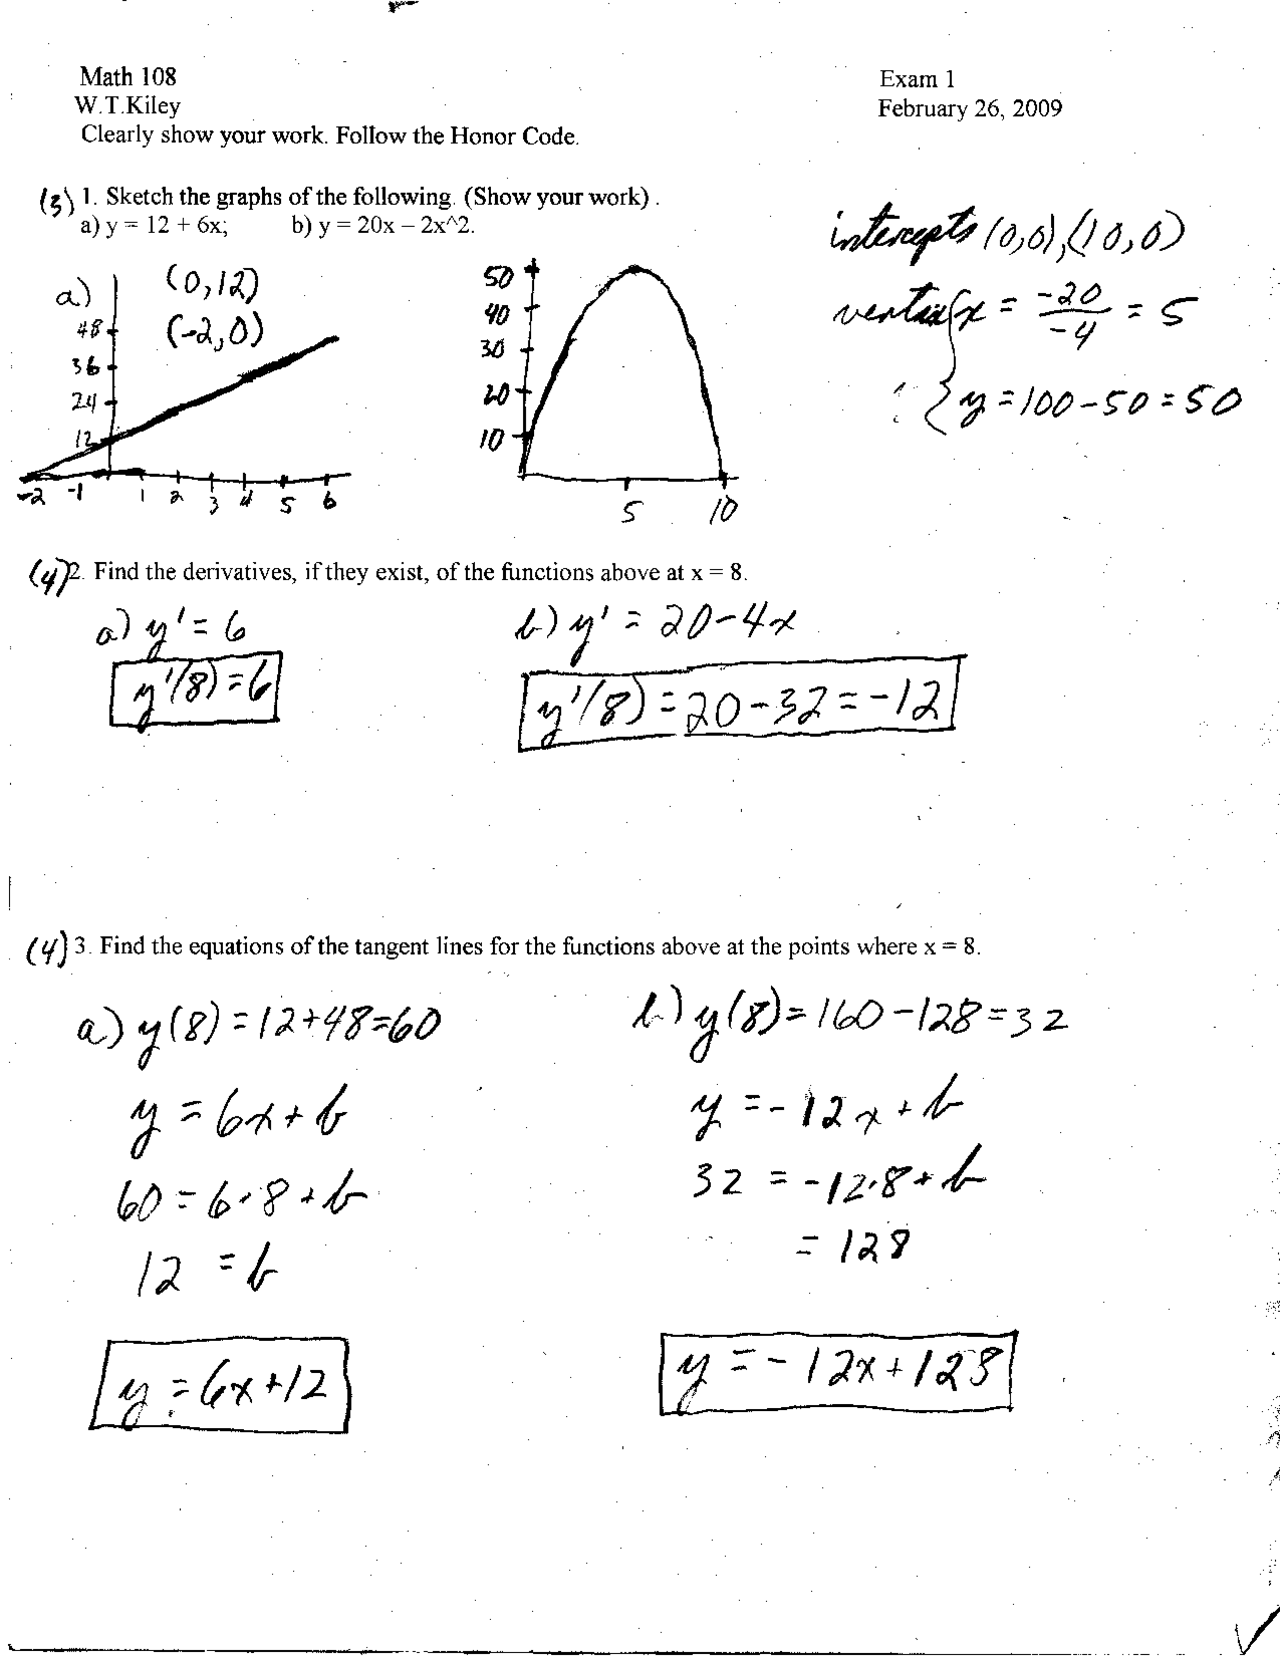 Math 108
Exam 1
W.T.Kiley
February 26, 2009
Clearly show your work. Follow the Honor Code.
(3) 1. Sketch the graphs of the following. (Show your work).
a) y = 12 + 6x; b) y = 20x – 2x^2.
intercepts (0,0), (10,0)
vertex { x = -20/-4 = 5
y = 100 - 50 = 50
a)
(0,12)
(-2,0)
48
36
24
12
-2 -1 1 2 3 4 5 6
50
40
30
20
10
5 10
(4) 2. Find the derivatives, if they exist, of the functions above at x = 8.
a) y' = 6
y'(8) = 6
b) y' = 20 - 4x
y'(8) = 20 - 32 = -12
(4) 3. Find the equations of the tangent lines for the functions above at the points where x = 8.
a) y(8) = 12 + 48 = 60
y = 6x + b
60 = 6·8 + b
12 = b
y = 6x + 12
b) y(8) = 160 - 128 = 32
y = -12x + b
32 = -12·8 + b
= 128
y = -12x + 128